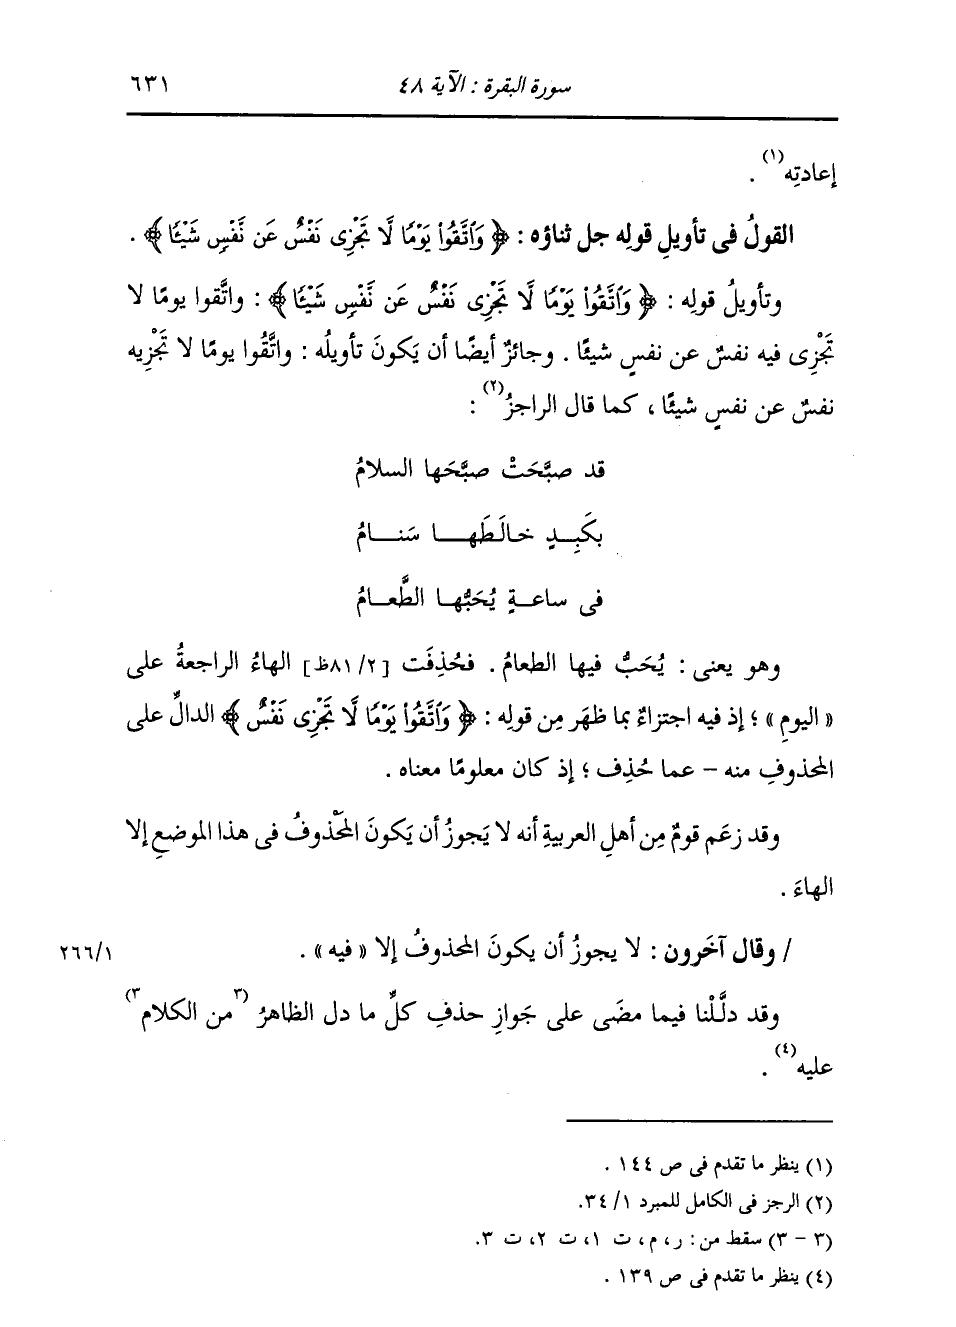 سورة البقرة : الآية ٤٨
٦٣١
إعادتِه(١) .
القولُ فى تأويلِ قولِه جل ثناؤه : ﴿ وَٱتَّقُواْ يَوْمًا لَّا تَجْزِى نَفْسٌ عَن نَّفْسٍ شَيْئًا ﴾ .
وتأويلُ قولِه : ﴿ وَٱتَّقُواْ يَوْمًا لَّا تَجْزِى نَفْسٌ عَن نَّفْسٍ شَيْئًا ﴾ : واتَّقوا يومًا لا
تَجْزِى فيه نفسٌ عن نفسٍ شيئًا . وجائزٌ أيضًا أن يَكونَ تأويلُه : واتَّقُوا يومًا لا تَجْزِيه
نفسٌ عن نفسٍ شيئًا ، كما قال الراجزُ(٢) :
قد صبَّحَتْ صبَّحَها السلامُ
بكَبِـــدٍ خـالَـطَهـــا سَنـــامُ
فى ساعــةٍ يُحَبُّهـا الطَّعــامُ
وهو يعنى : يُحَبُّ فيها الطعامُ . فحُذِفَت [٨١/٢ظ] الهاءُ الراجعةُ على
« اليومِ » ؛ إذ فيه اجتزاءٌ بما ظهَر مِن قولِه : ﴿ وَٱتَّقُواْ يَوْمًا لَّا تَجْزِى نَفْسٌ ﴾ الدالِّ على
المحذوفِ منه – عما حُذِف ؛ إذ كان معلومًا معناه .
وقد زعَم قومٌ مِن أهلِ العربيةِ أنه لا يَجوزُ أن يَكونَ المَحْذوفُ فى هذا الموضعِ إلا
الهاءَ .
/ وقال آخَرون : لا يجوزُ أن يكونَ المحذوفُ إلا « فيه » .
٢٦٦/١
وقد دلَّلْنا فيما مضَى على جَوازِ حذفِ كلِّ ما دل الظاهرُ (٣من الكلام٣)
عليه(٤) .
(١) ينظر ما تقدم فى ص ١٤٤ .
(٢) الرجز فى الكامل للمبرد ٣٤/١.
(٣ – ٣) سقط من : ر ، م ، ت ١، ت ٢، ت ٣.
(٤) ينظر ما تقدم فى ص ١٣٩ .